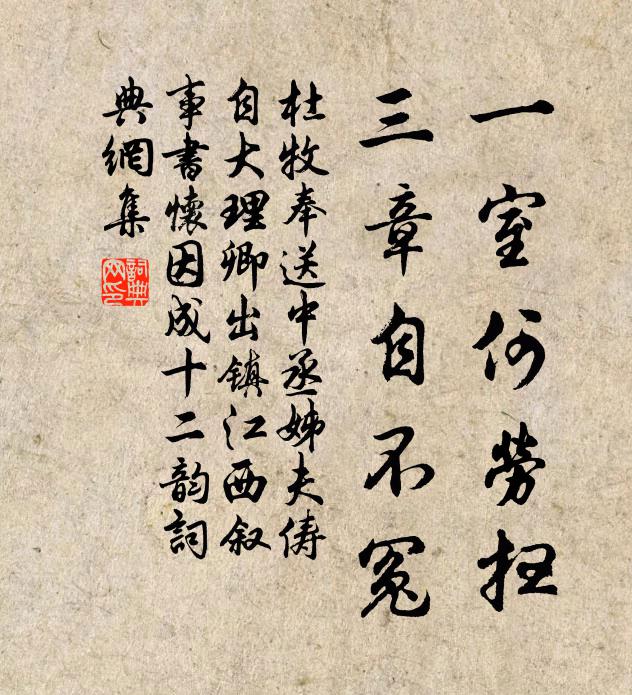 一室何勞扫
三章自不冤
杜牧奉送中丞姊夫儔
自大理卿出鎮江西叙
事書懷因成十二韵詞
典網集
詞典网印